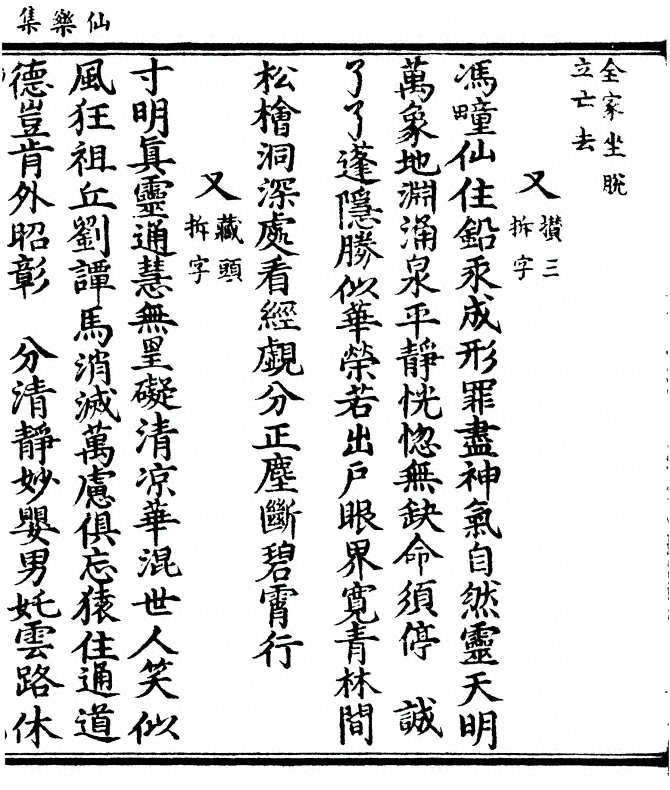 仙樂集
全家坐脫
立亡去
又
攅三
拆字
馮疃仙住鉛汞成形罪盡神氣自然靈天明
萬象地淵涌泉平靜恍惚無缺命須停　誠
了了蓬隱勝似華榮若出戶眼界寬青林間
松檜洞深處看經覷分正塵斷碧霄行
又
藏頭
拆字
寸明眞靈通慧無罣礙清凉華混世人笑似
風狂祖丘劉譚馬消滅萬慮俱忘猿住通道
德豈肯外昭彰　分清靜妙嬰男奼雲路休